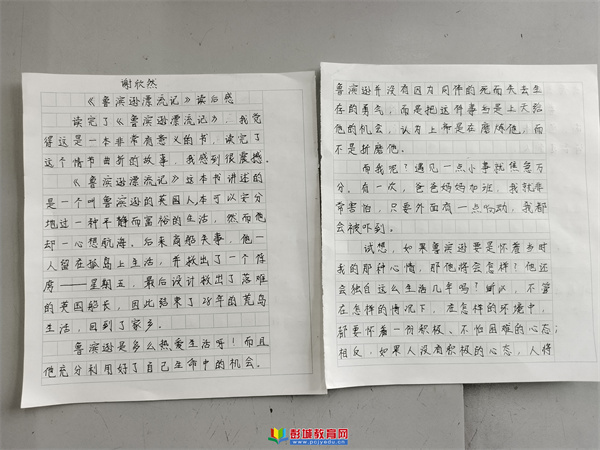 谢欣然
《鲁滨逊漂流记》读后感
读完了《鲁滨逊漂流记》，我觉
得这是一本非常有意义的书，读完了
这个情节曲折的故事，我感到很震撼。
《鲁滨逊漂流记》这本书讲述的
是一个叫鲁滨逊的英国人本可以安分
地过一种不静而富裕的生活，然而他
却一心想航海。后来商船失事，他一
人留在孤岛上生活，并救出了一个俘
房——星期五，最后设计救出了落难
的英国船长，因此结束了28年的荒岛
生活，回到了家乡。
鲁滨逊是多么热爱生活呀！而且
他充分利用好了自己生命中的机会。
鲁滨逊并没有因为同伴的死而失去生
存的勇气，而是把这件事当是上天给
他的机会，认为上帝是在磨练他，而
不是折磨他。
而我呢？遇见一点小事就焦急万
分。有一次，爸爸妈妈加班，我就非
常害怕，只要外面有一点响动，我都
会被吓到。
试想，如果鲁滨逊要是怀着当时
我的那种心情，那他将会怎样？他还
会独自这么生活几年吗？所以，不管
在怎样的情况下，在怎样的环境中，
都要怀着一份积极、不怕困难的心态；
相反，如果人没有积极的心态，人将
彭城教育网
www.pcjyedu.cn